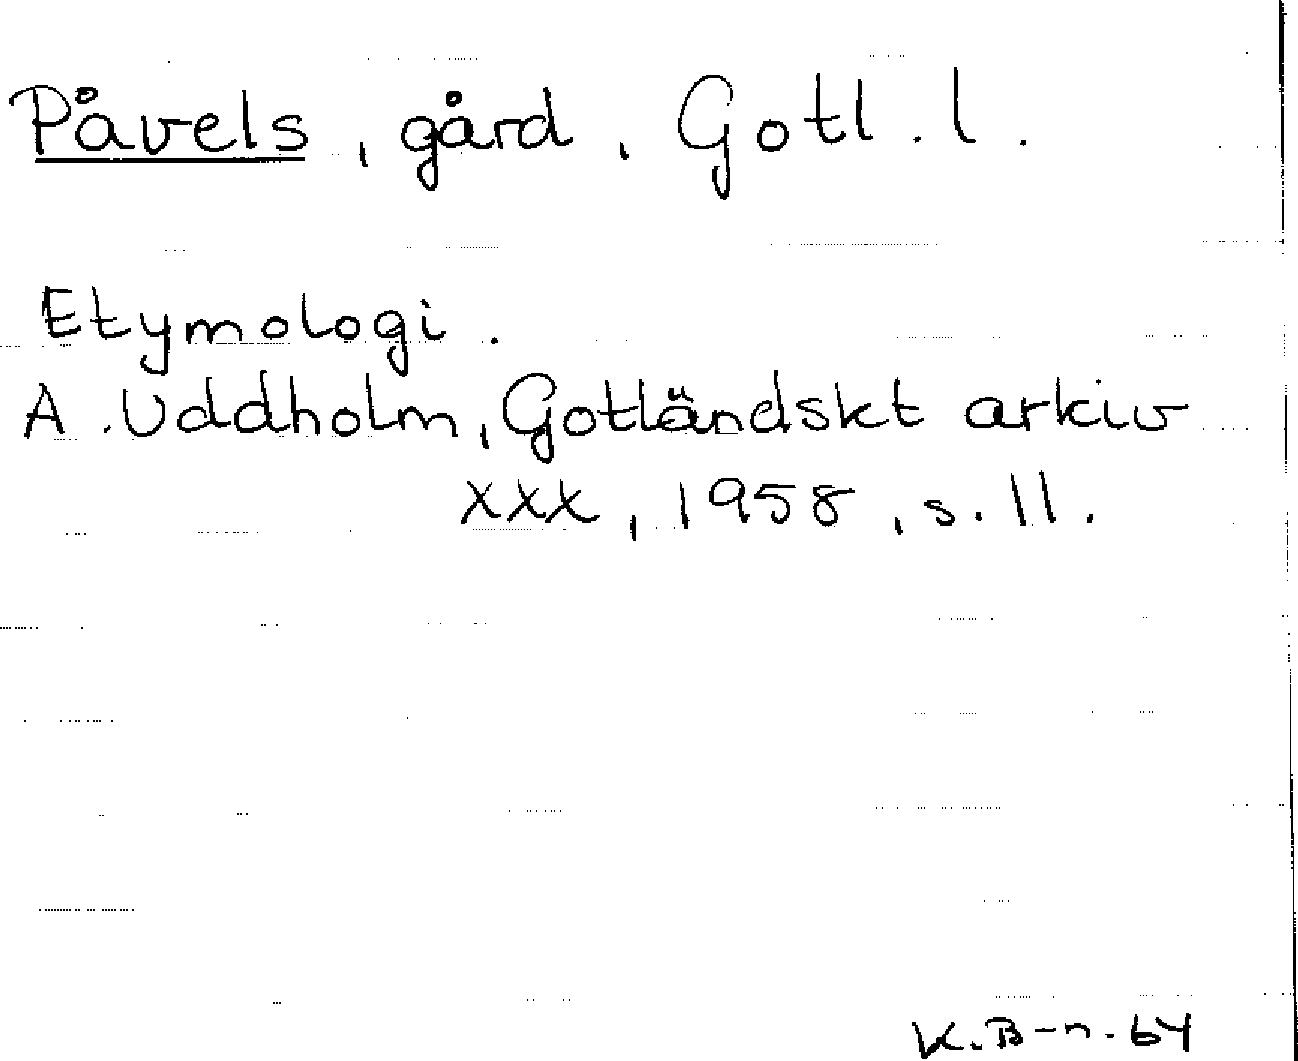 Påvels, gård, Gotl. l.
Etymologi.
A. Uddholm, Gotländskt arkiv
XXX, 1958, s. 11.
K. B-n. 64